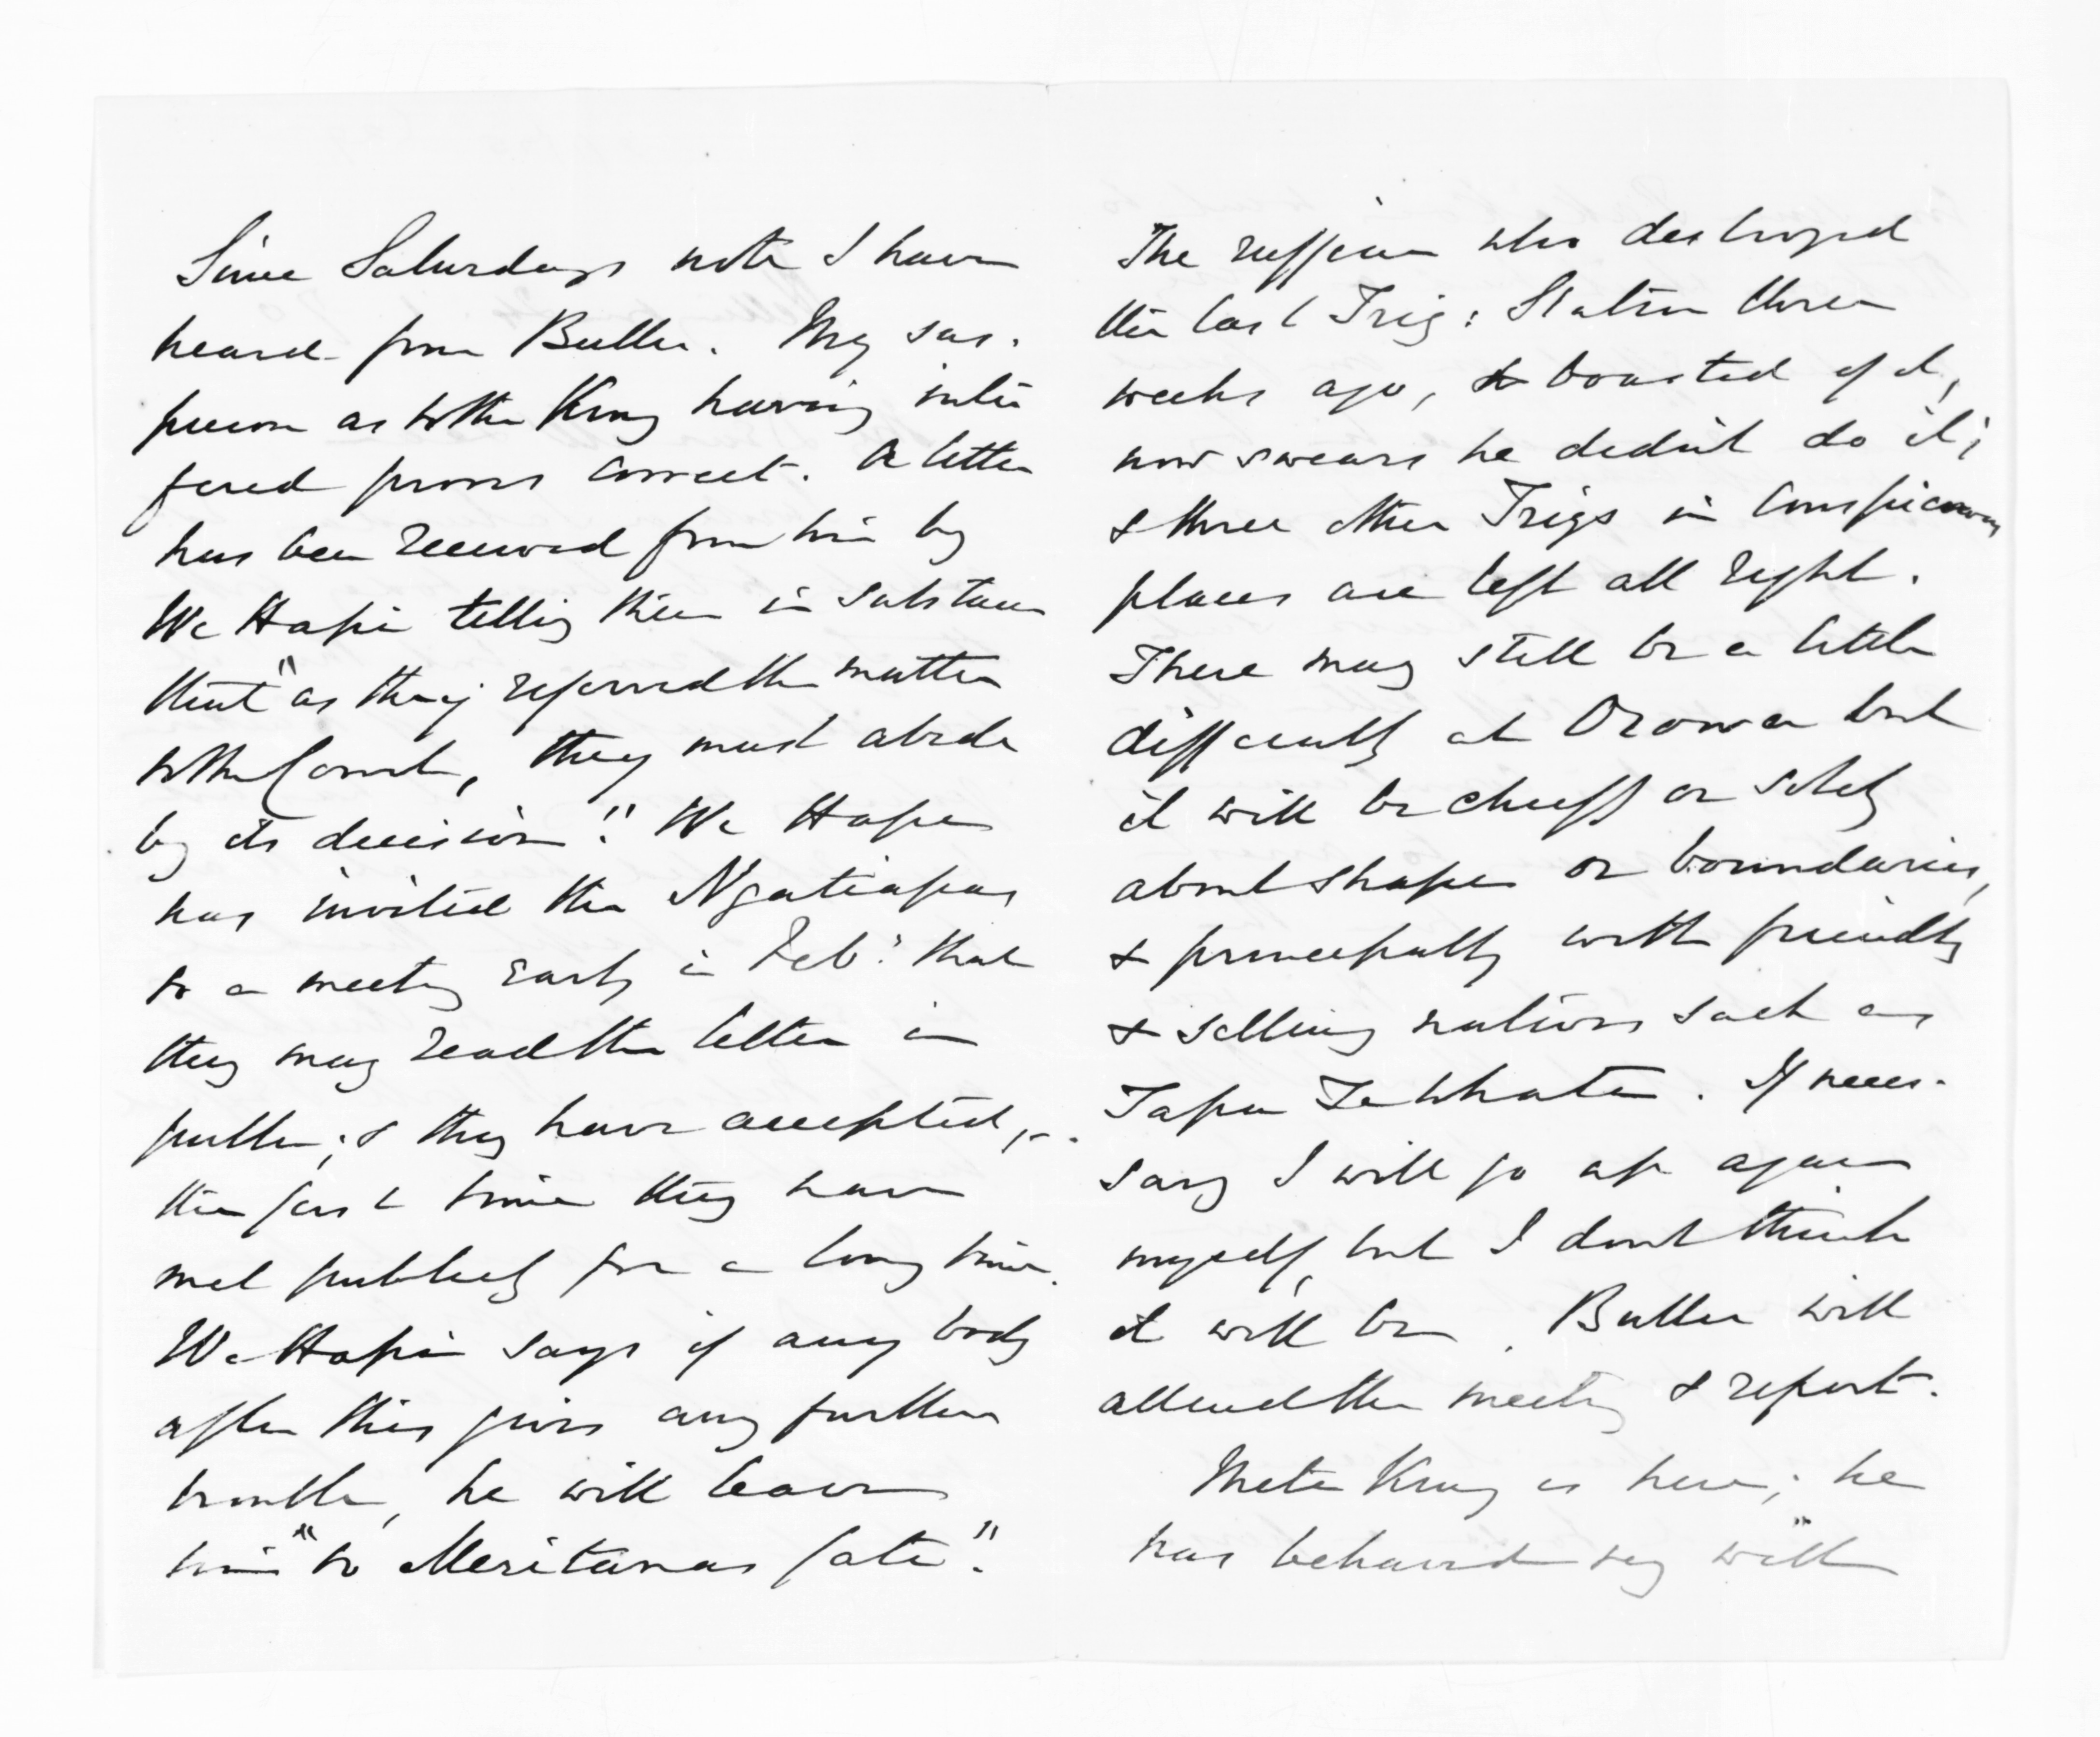 Since Saturdays note I have
heard from Buller. My sus.
picion as to the King having inter
fered proves correct. A letter
has been received from him by
We Hapi telling them in substance
that "as they referred the matter
to the Court, they must abide
by its decision". We Hapi
has invited the Ngatiapas
to a meeting early in Feb: that
they may read the letter in
public; & they have accepted,
the first time they have
met publicly for a long time.
We Hapi says if any body
after this gives any further
trouble, he will leave
him "to Meritanas fate".
The ruffian who destroyed
the last Trig: Station three
weeks ago, & boasted of it,
now swears he didn't do it;
& three other Trigs in conspicuous
places are left all right.
There may still be a little
difficulty at Oroua but
it will be chiefly or solely
about shapes or boundaries,
& principally with friendly
& selling natives such as
Tapa Te Whata. If neces-
sary I will go up again
myself, but I dont think
it will be. Buller will
attend the meeting & report.
Mete King is here; he
has behaved very well